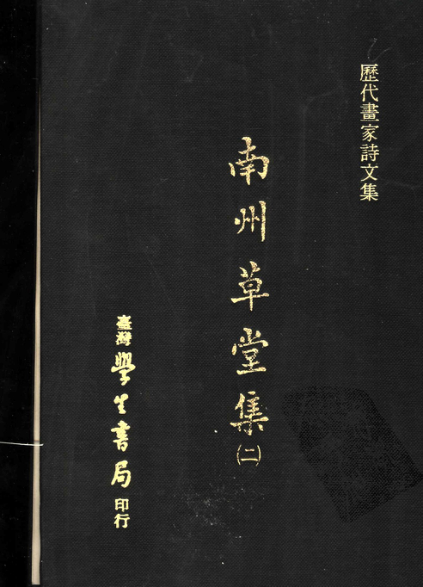 歷代畫家詩文集
南州草堂集(二)
臺灣學生書局印行